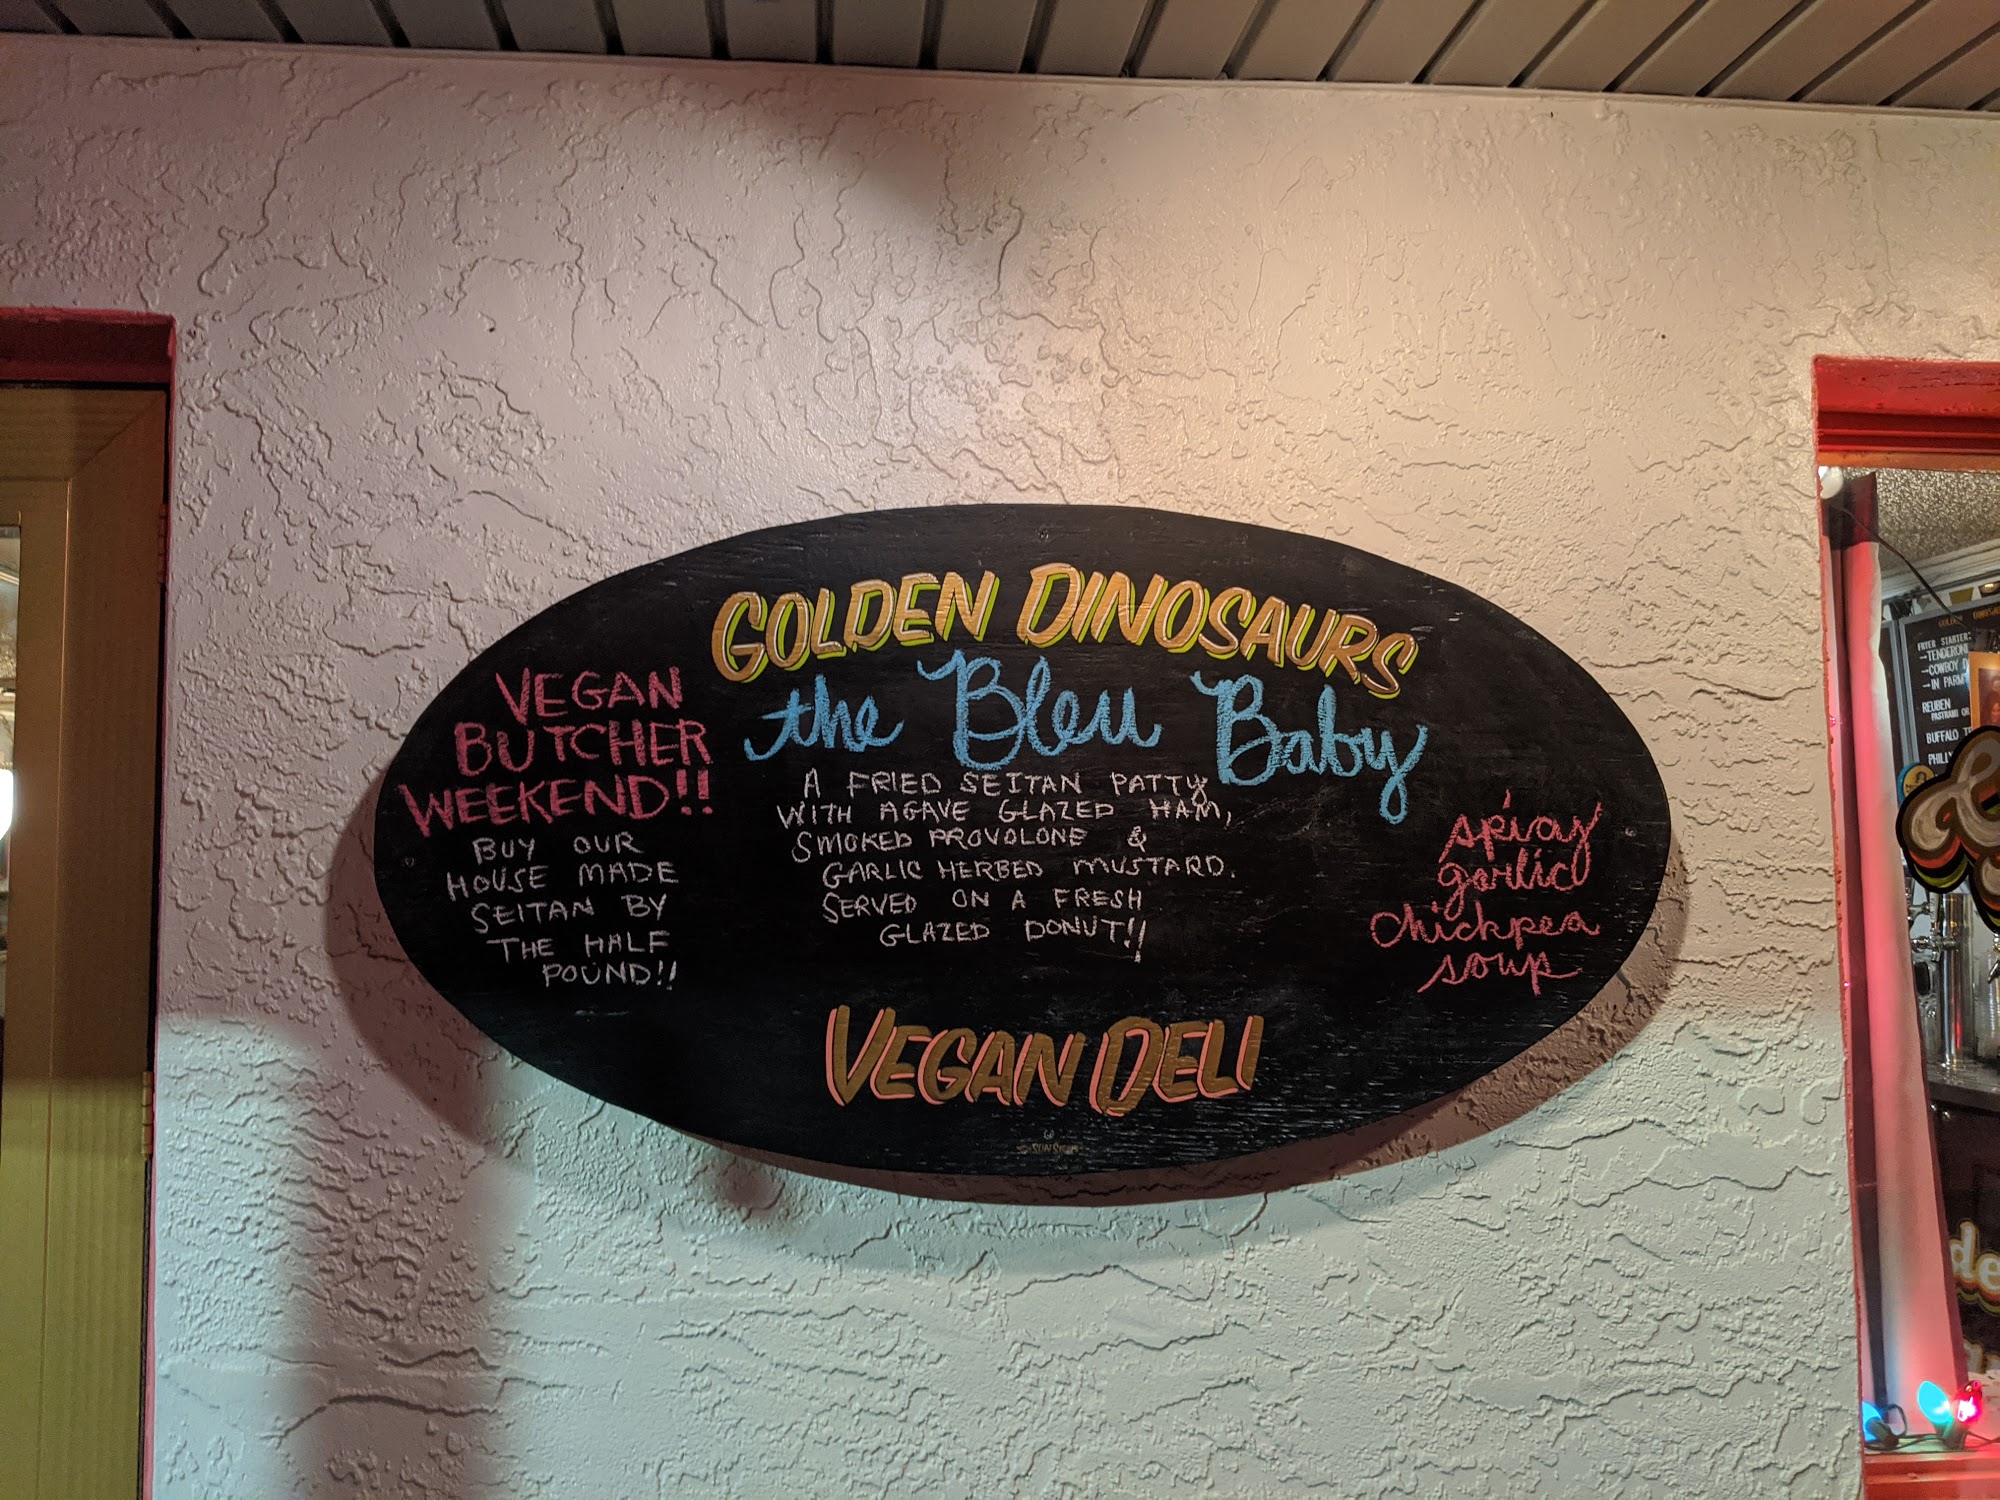 GOLDEN DINOSAURS
the Bleu Baby
A FRIED SEITAN PATTY
WITH AGAVE GLAZED HAM,
SMOKED PROVOLONE &
GARLIC HERBED MUSTARD.
SERVED ON A FRESH
GLAZED DONUT!!
VEGAN
BUTCHER
WEEKEND!!
BUY OUR
HOUSE MADE
SEITAN BY
THE HALF
POUND!!
spicy
garlic
chickpea
soup
VEGAN DELI
FRIED STARTER:
REUBEN
BUFFALO
PHILLY